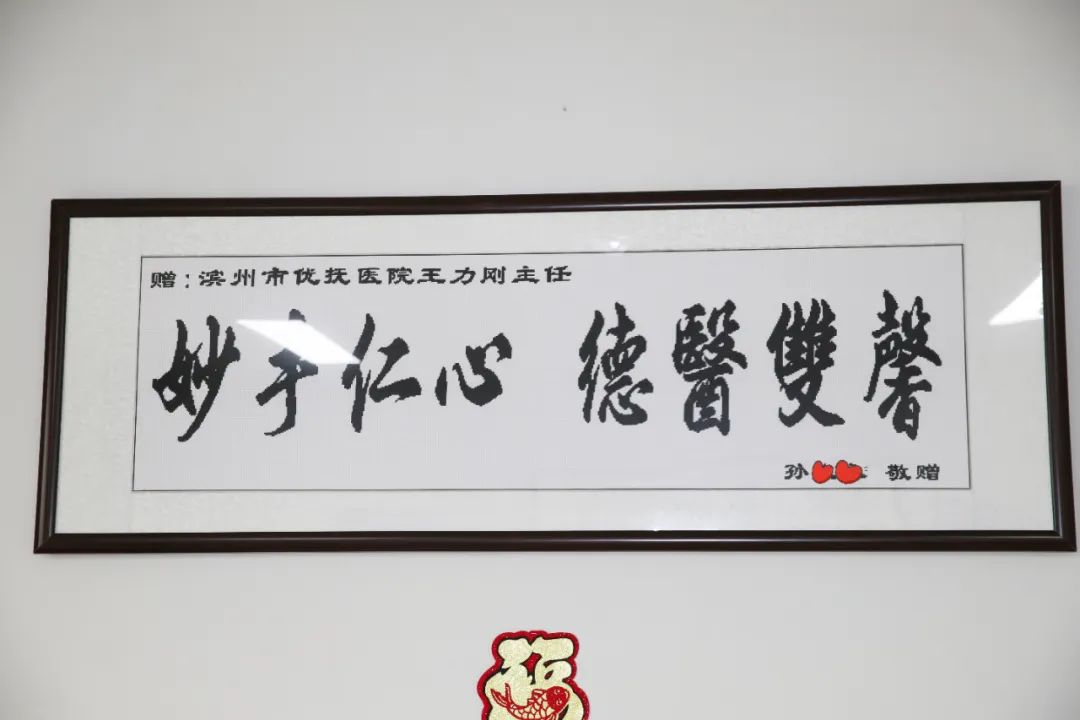 赠:滨州市优抚医院王力刚主任
妙手仁心 德醫雙馨
孙 敬赠
福